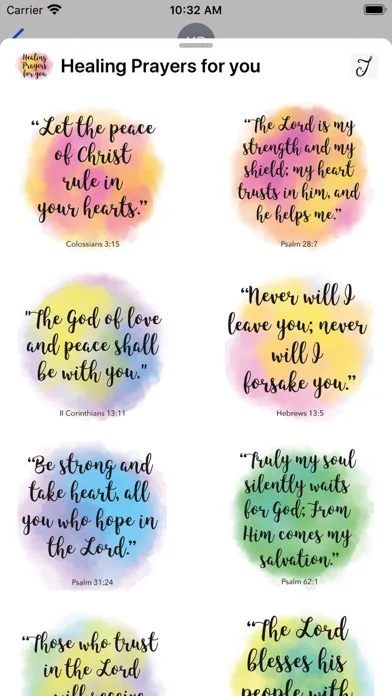 Carrier
10:32 AM
Healing
Prayers
for you
Healing Prayers for you
“Let the peace
of Christ
rule in
your hearts.”
Colossians 3:15
“The Lord is my
strength and my
shield; my heart
trusts in him, and
he helps me.”
Psalm 28:7
"The God of love
and peace shall
be with you."
II Corinthians 13:11
“Never will I
leave you; never
will I
forsake you.”
Hebrews 13:5
“Be strong and
take heart, all
you who hope in
the Lord.”
Psalm 31:24
“Truly my soul
silently waits
for God; From
Him comes my
salvation.”
Psalm 62:1
“Those who trust
in the Lord
will receive
“The Lord
blesses his
people with